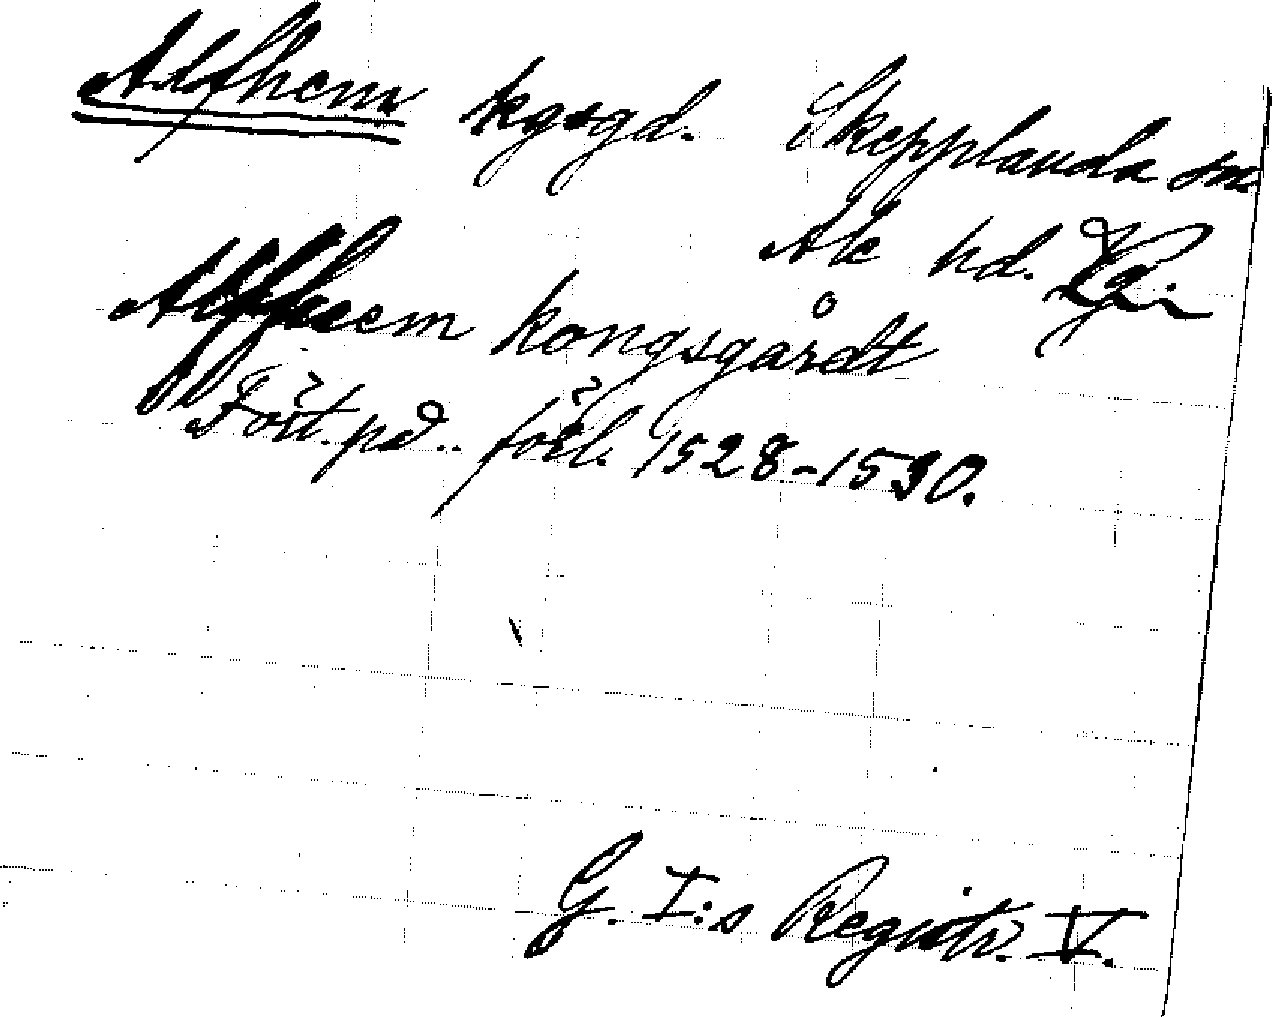 Alfhem kgsgd. Skepplanda sn
Ale hd. Vg.
Alffheem kongsgårdt
Fört. på förl. 1528-1530.
G. I:s Registr. V.